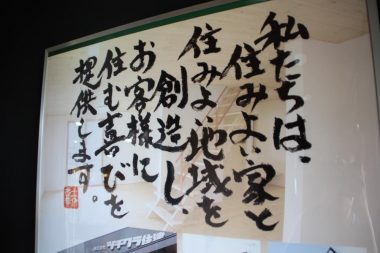 私たちは、
住みよい家と
住みよい地域を
創造し、
お客様に
住む喜びを
提供します。
ツチクラ住建